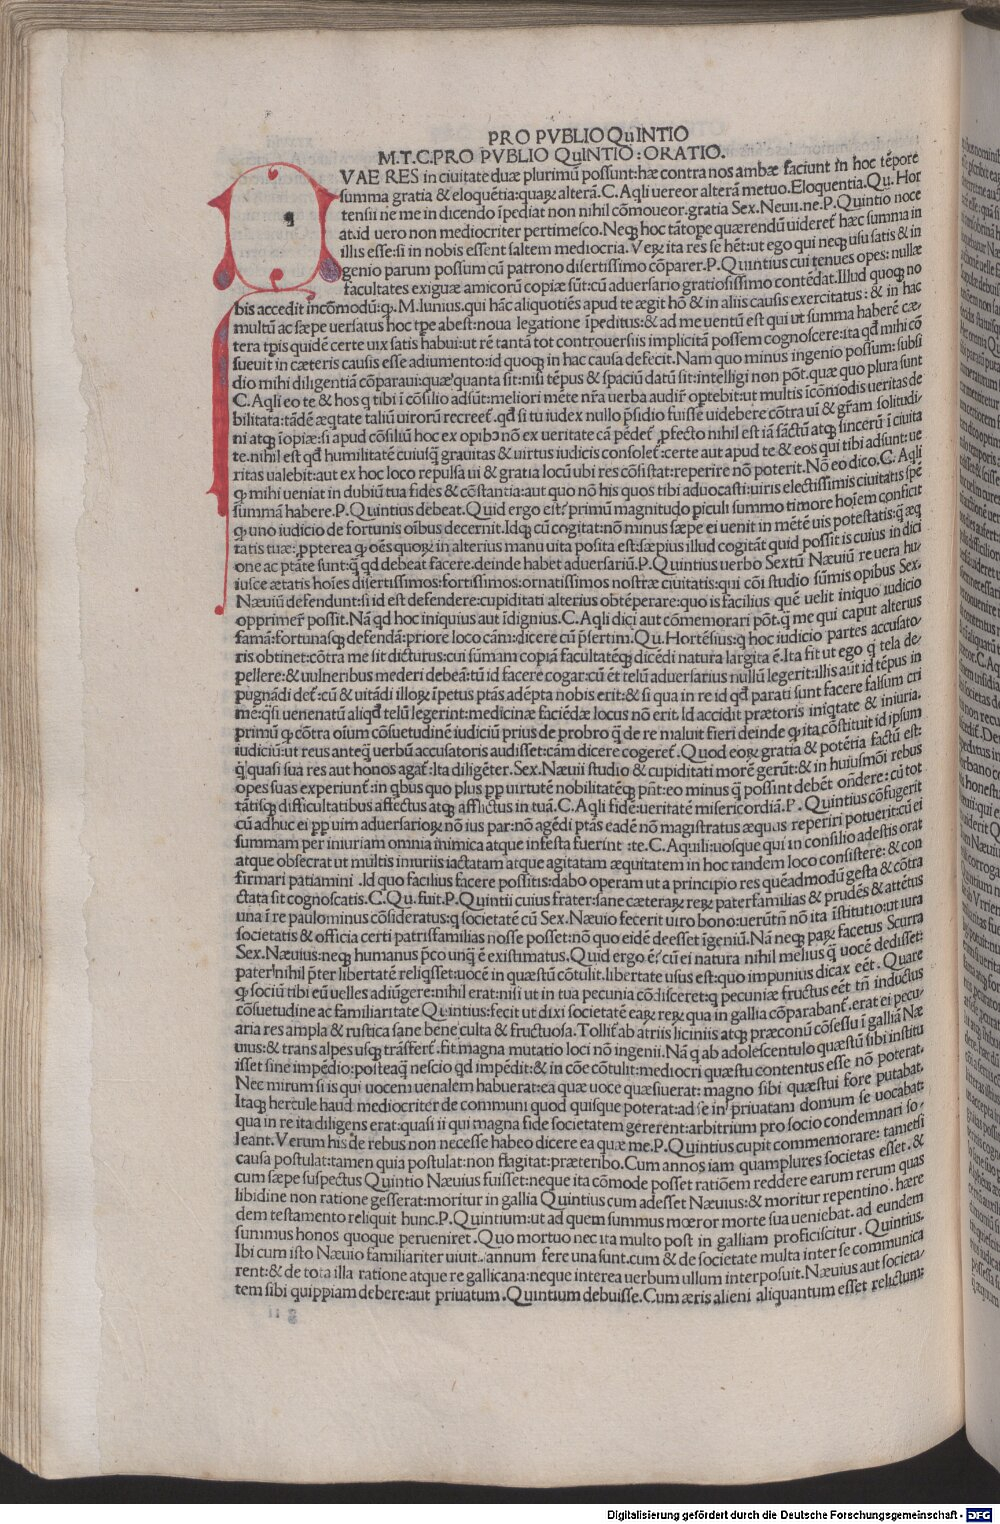 PRO PVBLIO QuINTIO
M.T.C.PRO PVBLIO QuINTIO:ORATIO.
QVAE RES in ciuitate duæ plurimũ poſſunt:hæ contra nos ambæ faciunt in hoc tẽpore
ſumma gratia & eloquẽtia:quaꝝ alterã.C.Aqli uereor alterã metuo.Eloquentia.Qu.Hor
tenſii ne me in dicendo ĩpediat non nihil cõmoueor.gratia Sex.Neuii.ne.P.Quintio noce
at.id uero non mediocriter pertimeſco.Neqꝫ hoc tãtope quærendũ uideret᷑ hæc ſumma in
illis eſſe:ſi in nobis eſſent ſaltem mediocria.Veꝝ ita res ſe hẽt:ut ego qui neqꝫ uſu ſatis & in
genio parum poſſum cũ patrono diſertiſſimo cõparer.P.Quintius cui tenues opes: nullæ
facultates exiguæ amicorũ copiæ ſũt:cũ aduerſario gratioſiſſimo contẽdat.Illud quoqꝫ no
bis accedit incõmodũ:ꝙ.M.Iunius.qui hãc aliquotiẽs apud te ægit hõ & in aliis cauſis exercitatus: & in hac
multũ ac ſæpe uerſatus hoc tꝑe abeſt:noua legatione ĩpeditus:& ad me uentũ eſt qui ut ſumma haberẽ cæ
tera tꝑis quidẽ certe uix ſatis habui:ut rẽ tantã tot controuerſiis implicitã poſſem cognoſcere:ita qd̃ mihi cõ
ſueuit in cæteris cauſis eſſe adiumento:id quoqꝫ in hac cauſa defecit.Nam quo minus ingenio poſſum: ſubſi
dio mihi diligentiã cõparaui:quæ quanta ſit:niſi tẽpus & ſpaciũ datũ ſit:intelligi non põt.quæ quo plura ſunt
C.Aqli eo te & hos q tibi ĩ cõſilio adſũt:meliori mẽte nr̃a uerba audir̃ oꝑtebit:ut multis ĩcõmodis ueritas de
bilitata:tãdẽ æqtate taliũ uirorũ recreet᷑.qd̃ ſi tu iudex nullo p̃ſidio fuiſſe uidebere cõtra uĩ & gr̃am ſolitudi/
ni atqꝫ ĩopiæ:ſi apud cõſiliũ hoc ex opibꝰ nõ ex ueritate cã pẽdet᷑ ꝓfecto nihil eſt iã ſãctũ atqꝫ ſincerũ ĩ ciuita
te.nihil eſt qd̃ humilitatẽ cuiuſq̃ grauitas & uirtus iudicis conſolet᷑:certe aut apud te & eos qui tibi adſunt:ue
ritas ualebit:aut ex hoc loco repulſa ui & gratia locũ ubi res cõſiſtat:reperire nõ poterit.Nõ eo dico.C.Aqli
ꝙ mihi ueniat in dubiũ tua fides & cõſtantia:aut quo nõ his quos tibi aduocaſti:uiris electiſſimis ciuitatis ſpẽ
ſummã habere.P.Quintius debeat.Quid ergo eſt? primũ magnitudo ꝑiculi ſummo timore hoĩem conficit
ꝙ uno iudicio de fortunis oĩbus decernit.Idqꝫ cũ cogitat:nõ minus ſæpe ei uenit in mẽtẽ uis poteſtatis:q̃ æq
tatis tuæ:ꝓpterea ꝙ oẽs quoꝝ in alterius manu uita poſita eſt:ſæpius illud cogitãt quid poſſit is cuius in dici
one ac ptãte ſunt:q̃ qd debeat facere.deinde habet aduerſariũ.P.Quintius uerbo Sextũ Næuiũ re uera hu/
iuſce ætatis hoĩes diſertiſſimos:fortiſſimos:ornatiſſimos noſtræ ciuitatis:qui cõi ſtudio ſũmis opibus Sex.
Næuiũ defendunt:ſi id eſt defendere:cupiditati alterius obtẽperare:quo is facilius quẽ uelit iniquo iudicio
opprimer̃ poſſit.Nã qd hoc iniquius aut ĩdignius.C.Aqli dici aut cõmemorari põt.q̃ me qui caput alterius
famã:fortunaſqꝫ defendã:priore loco cãm:dicere cũ p̃ſertim.Qu.Hortẽſius:q hoc iudicio partes accuſato/
ris obtinet:cõtra me ſit dicturus:cui ſũmam copiã facultatẽqꝫ dicẽdi natura largita ẽ.Ita fit ut ego q̃ tela de/
pellere:& uulneribus mederi debeã:tũ id facere cogar:cũ ẽt telũ aduerſarius nullũ legerit:illis aut id tẽpus in
pugnãdi det᷑:cũ & uitãdi illoꝝ ĩpetus ptãs adẽpta nobis erit:& ſi qua in re id qd̃ parati ſunt facere falſum cri
me:q̃ſi uenenatũ aliqd̃ telũ legerint:medicinæ faciẽdæ locus nõ erit.Id accidit prætoris iniqtate & iniuria.
primũ ꝙ cõtra oĩum cõſuetudinẽ iudiciũ prius de probro q̃ de re maluit fieri deinde ꝙ ita cõſtituit id ipſum
iudiciũ:ut reus anteq̃ uerbũ accuſatoris audiſſet:cãm dicere cogeret᷑.Quod eoꝝ gratia & potẽtia factũ eſt:
q̃ quaſi ſua res aut honos agat᷑:Ita diligẽter.Sex.Næuii ſtudio & cupiditati morẽ gerũt:& in huiuſmõi rebus
opes ſuas experiunt᷑:in qbus quo plus ꝓp uirtutẽ nobilitatẽqꝫ pñt:eo minus q̃ poſſint debẽt oñdere:cũ tot
tãtiſqꝫ difficultatibus affectus atqꝫ afflictus in tuã.C.Aqli fidẽ:ueritatẽ miſericordiã.P. Quintius cõfugerit
cũ adhuc ei ꝓp uim aduerſarioꝝ nõ ius par:nõ agẽdi ptãs eadẽ nõ magiſtratus æquus reperiri potuerit:cũ ei
ſummam per iniuriam omnia inimica atque infeſta fuerint :te.C.Aquili:uoſque qui in conſilio adeſtis orat
atque obſecrat ut multis iniuriis iactatam atque agitatam æquitatem in hoc tandem loco conſiſtere: & con
firmari patiamini .Id quo facilius facere poſſitis:dabo operam ut a principio res quẽadmodũ geſta & cõtra
ctata ſit cognoſcatis.C.Qu.fuit.P.Quintii cuius frater:ſane cæteraꝝ reꝝ paterfamilias & prudẽs & attẽtus
una ĩ re paulominus cõſideratus:q ſocietatẽ cũ Sex.Næuio fecerit uiro bono:uerũtñ nõ ita ĩſtitutio:ut iura
ſocietatis & officia certi patriſfamilias noſſe poſſet:nõ quo eidẽ deeſſet ĩgeniũ.Nã neqꝫ paꝝ facetus Scurra
Sex.Næuius:neqꝫ humanus p̃co unq̃ ẽ exiſtimatus.Quid ergo ẽ? cũ ei natura nihil melius q̃ uocẽ dediſſet:
pater nihil p̃ter libertatẽ reliqſſet:uocẽ in quæſtũ cõtulit.libertate uſus eſt:quo impunius dicax eẽt. Quare
ꝙ ſociũ tibi eũ uelles adiũgere:nihil erat:niſi ut in tua pecunia cõdiſceret:q pecuniæ fructus eẽt tñ inductus
cõſuetudine ac familiaritate Quintius:fecit ut dixi ſocietatẽ eaꝝ reꝝ qua in gallia cõparabant᷑.erat ei pecu/
aria res ampla & ruſtica ſane bene culta & fructuoſa.Tollit᷑ ab atriis liciniis atqꝫ præconũ cõſeſſu ĩ galliã Næ
uius:& trans alpes uſqꝫ trãſfert᷑.fit magna mutatio loci nõ ingenii.Nã q ab adoleſcentulo quæſtũ ſibi inſtitu
iſſet ſine impẽdio:poſteaq̃ neſcio qd impẽdit:& in cõe cõtulit:mediocri quæſtu contentus eſſe nõ poterat.
Nec mirum ſi is qui uocem uenalem habuerat:ea quæ uoce quæſiuerat: magno ſibi quæſtui fore putabat.
Itaqꝫ hercule haud mediocriter de communi quod quiſque poterat:ad ſe in priuatam domum ſe uocabat:
qua in re ita diligens erat:quaſi ii qui magna fide ſocietatem gererent:arbitrium pro ſocio condemnari ſo/
leant.Verum his de rebus non neceſſe habeo dicere ea quæ me.P.Quintius cupit commemorare: tametſi
cauſa poſtulat:tamen quia poſtulat:non flagitat:præteribo.Cum annos iam quamplures ſocietas eſſet. &
cum ſæpe ſuſpectus Quintio Næuius fuiſſet:neque ita cõmode poſſet ratiõem reddere earum rerum quas
libidine non ratione geſſerat:moritur in gallia Quintius cum adeſſet Næuius:& moritur repentino. hære
dem teſtamento reliquit hunc.P.Quintium:ut ad quem ſummus mœror morte ſua ueniebat. ad eundem
ſummus honos quoque perueniret.Quo mortuo nec ita multo poſt in galliam proficiſcitur. Quintius.
Ibi cum iſto Næuio familiariter uiuit. annum fere una ſunt.cum & de ſocietate multa inter ſe communica
rent:& de tota illa ratione atque re gallicana:neque interea uerbum ullum interpoſuit.Næuius aut ſocieta/
tem ſibi quippiam debere:aut priuatum.Quintium debuiſſe.Cum æris alieni aliquantum eſſet relictum:
Digitalisierung gefördert durch die Deutsche Forschungsgemeinschaft - DFG